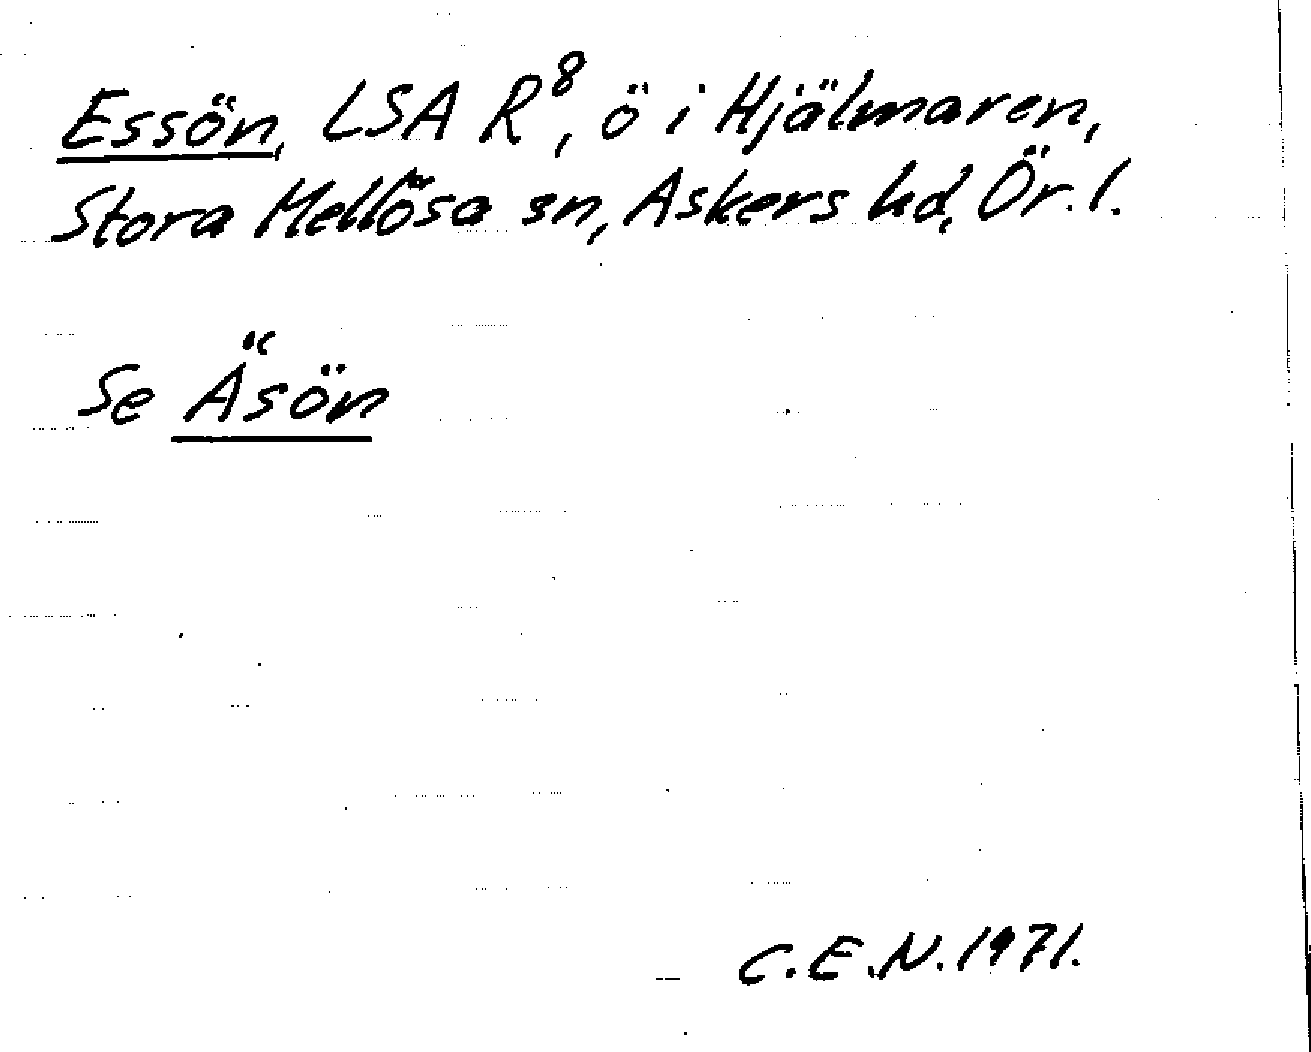 Essön, LSA R⁸, ö i Hjälmaren,
Stora Mellösa sn, Askers hd, Ör. l.
Se Äsön
C.E.N. 1971.